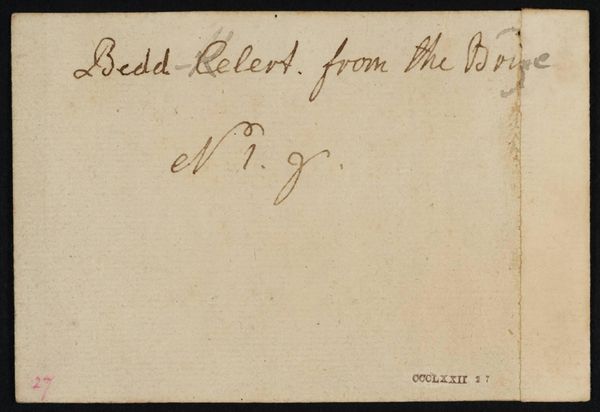 Bedd Kelert. from the Bri
N 1. 9.
27
CCCLXXII 27